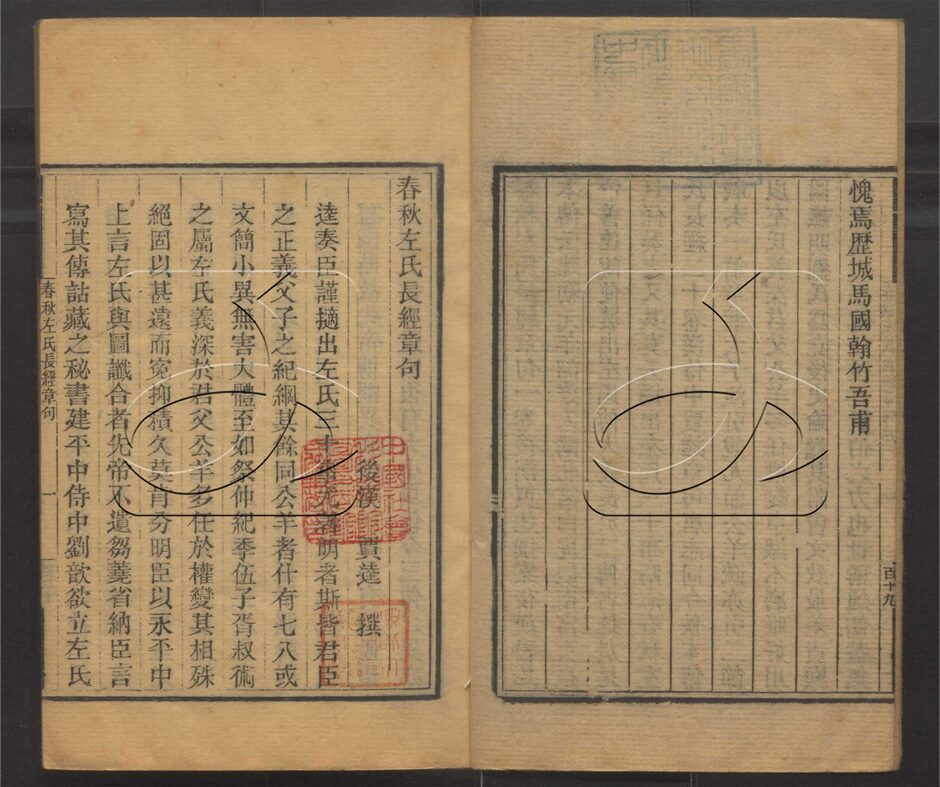 愧焉歴城馬國翰竹吾甫
百十九
春秋左氏長經章句
後漢 賈逵 撰
逵奏臣謹擿出左氏三十事尤著明者斯皆君臣
之正義父子之紀綱其餘同公羊者什有七八或
文簡小異無害大體至如祭仲紀季伍子胥叔術
之屬左氏義深於君父公羊多任於權變其相殊
絕固以甚遠而寃抑積久莫肯分明臣以永平中
上言左氏與圖讖合者先帝不遺芻蕘省納臣言
寫其傳詁藏之秘書建平中侍中劉歆欲立左氏
春秋左氏長經章句 一